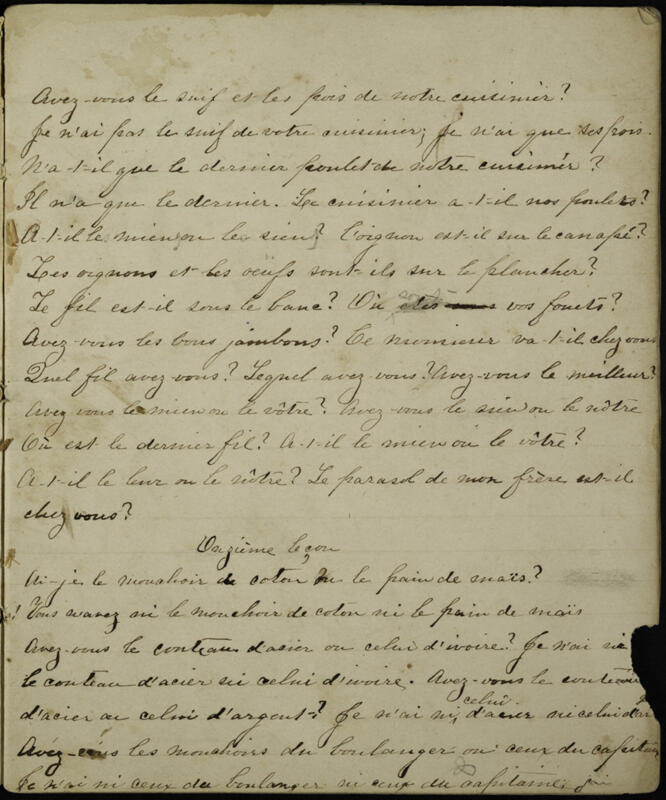 Avez-vous le suif et les pois de notre cuisinier?
Je n'ai pas le suif de votre cuisinier; Je n'ai que ses pois.
N'a-t-il que le dernier poulet de notre cuisinier?
Il n'a que le dernier. Le cuisinier a-t-il nos poulets?
A-t-il le mien ou le sien? L'oignon est-il sur le canapé?
Les oignons et les oeufs sont-ils sur le plancher?
Le fil est-il sous le banc? Où sont vos fouets?
Avez-vous les bons jambons? Le monsieur va-t-il chez vous
Quel fil avez-vous? Lequel avez-vous? Avez-vous le meilleur?
Avez-vous le mien ou le vôtre? Avez-vous le sien ou le nôtre
Où est le dernier fil? A-t-il le mien ou le vôtre?
A-t-il le leur ou le nôtre? Le parasol de mon frère est-il
chez vous?
Onzième leçon
Ai-je le mouchoir de coton ou le pain de maïs?
Vous n'avez ni le mouchoir de coton ni le pain de maïs
Avez-vous le couteau d'acier ou celui d'ivoire? Je n'ai ni
le couteau d'acier ni celui d'ivoire. Avez-vous le couteau
d'acier ou celui d'argent? Je n'ai ni celui d'acier ni celui d'ar
Avez-vous les mouchoirs du boulanger ou ceux du capitaine
Je n'ai ni ceux du boulanger ni ceux du capitaine, j'ai